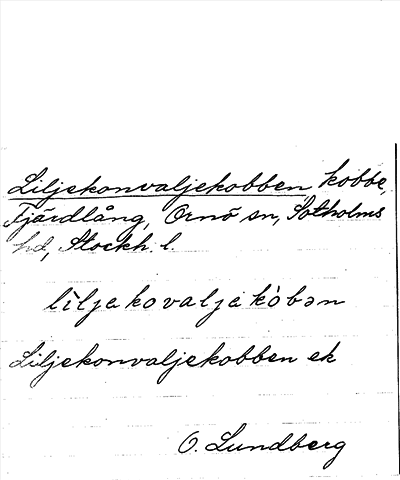 Liljekonvaljekobben, kobbe,
Fjärdlång, Ornö sn, Sotholms
hd, Stockh. l.
lìljakovaljakòbən
Liljekonvaljekobben ek
O. Lundberg